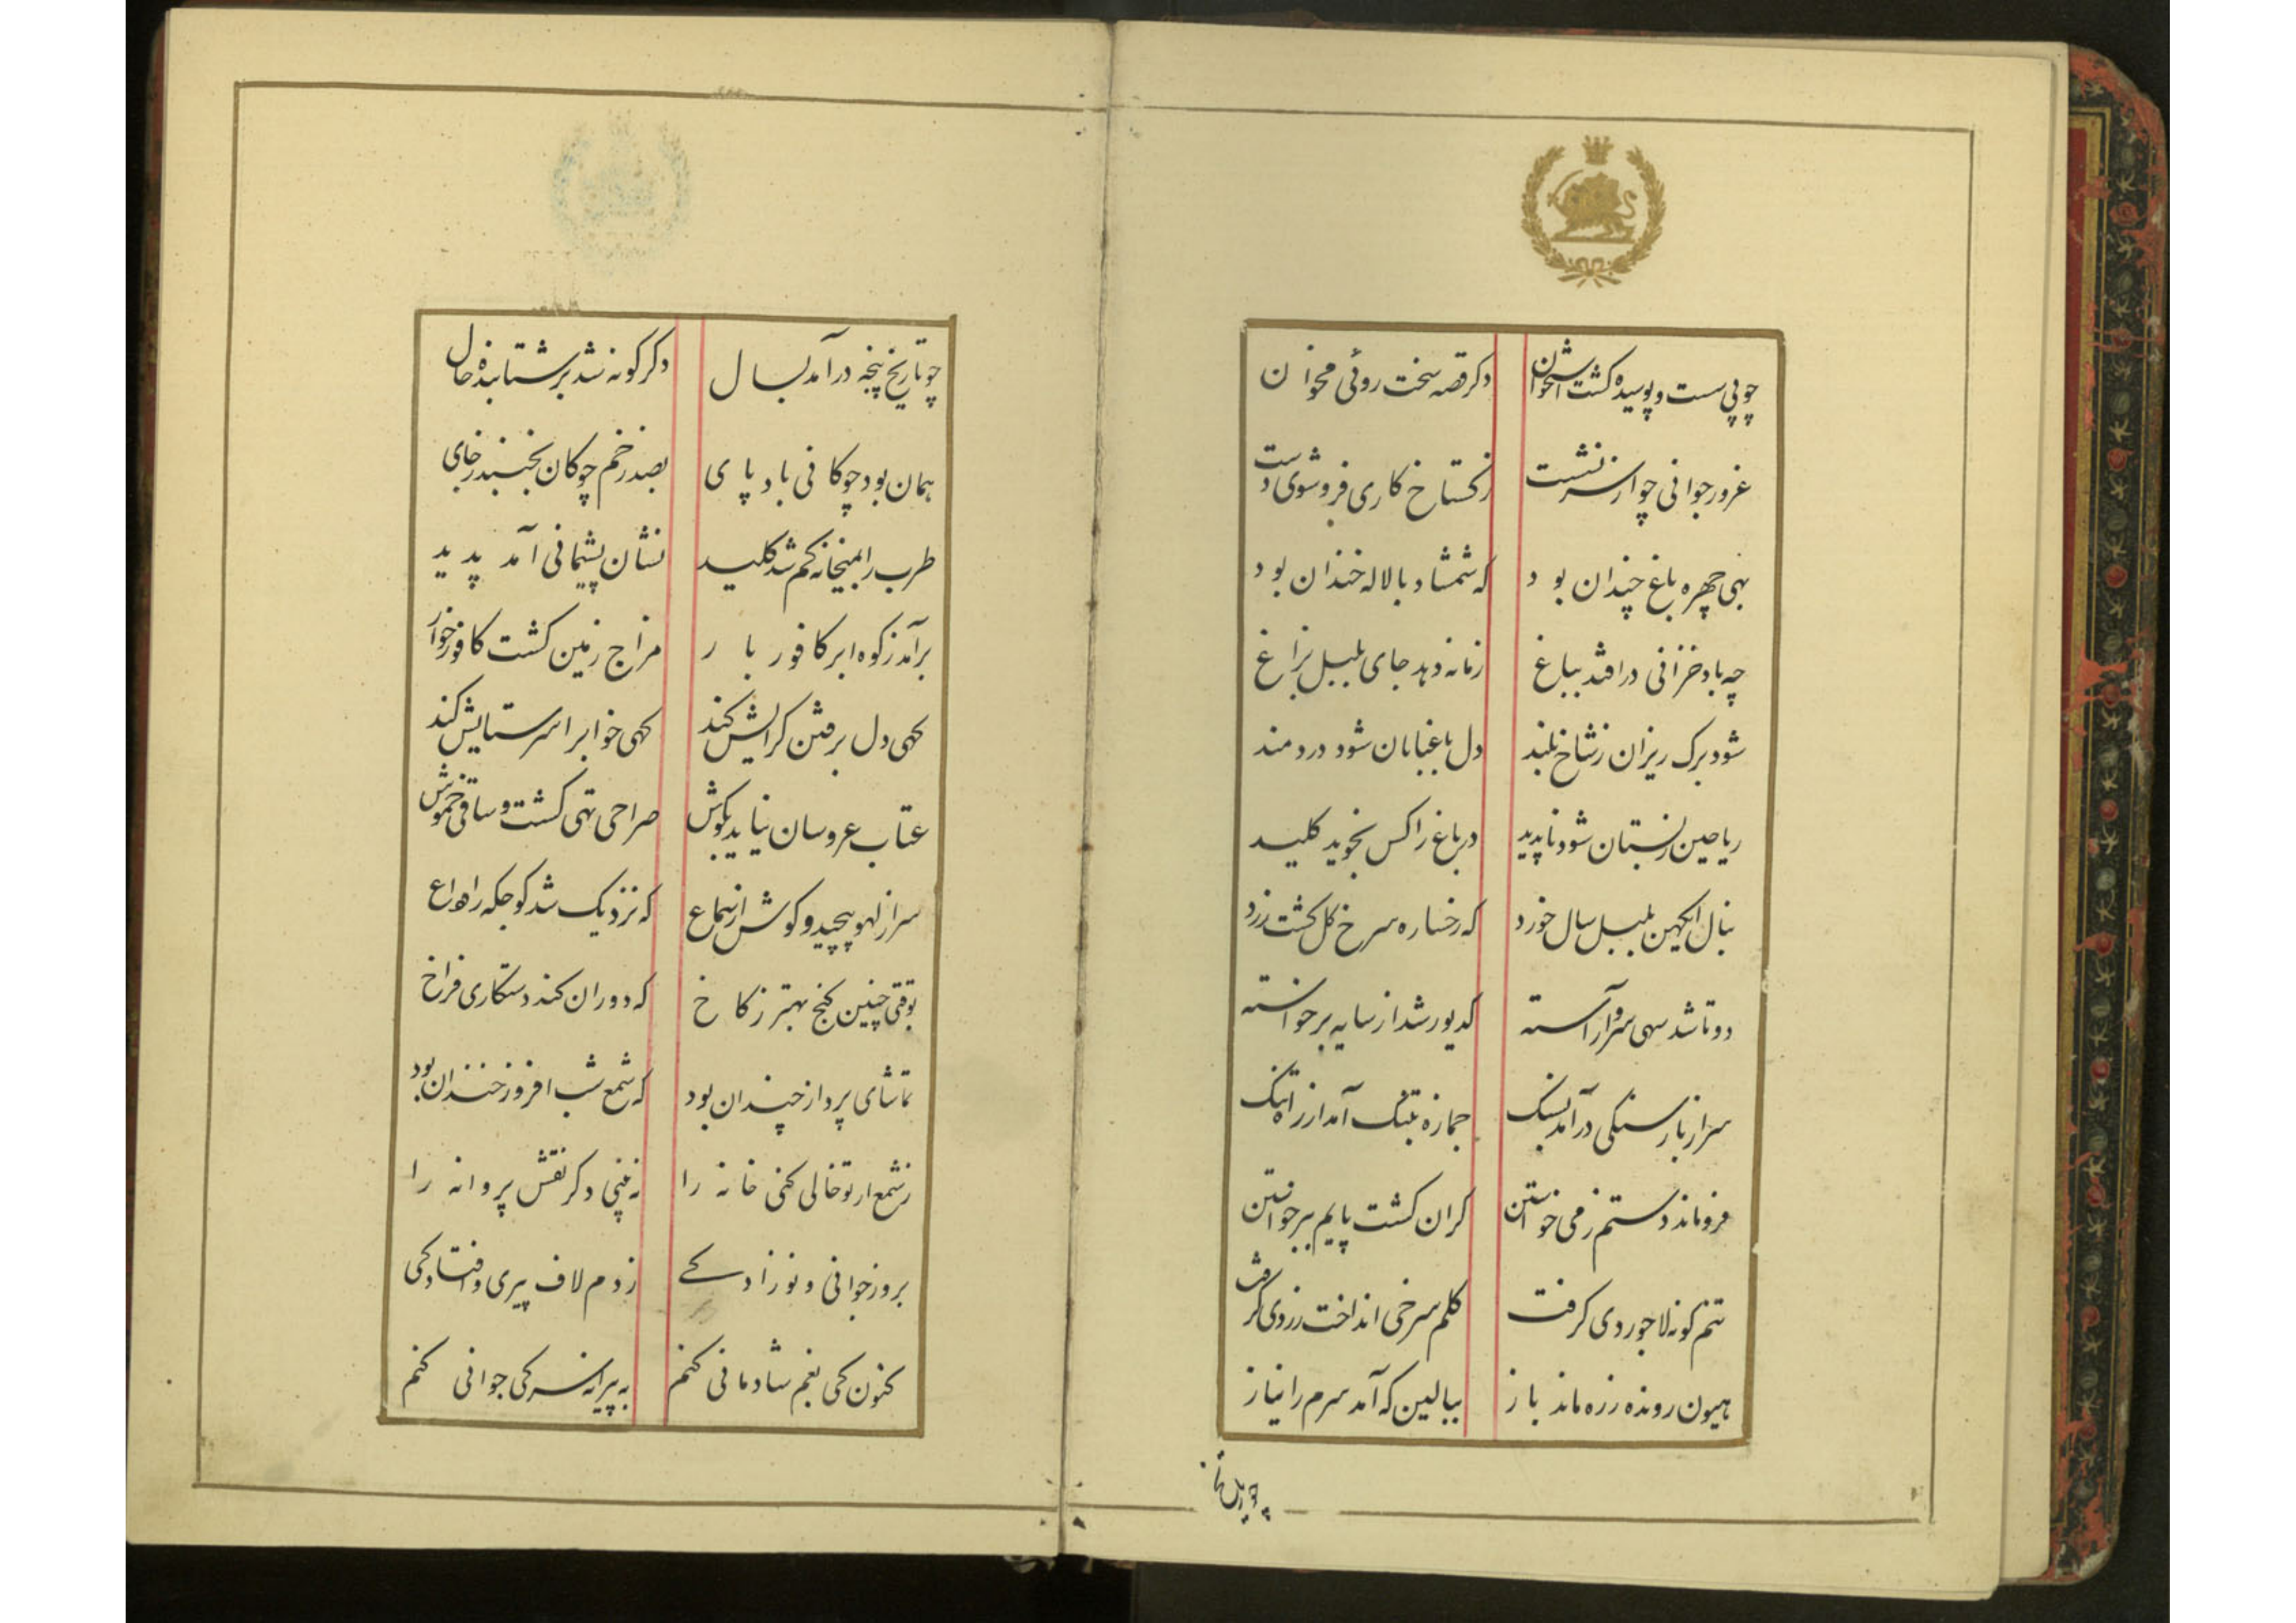 چو پی سست و پوسیده کشت استخوان دکر قصه سخت روئی مخوان
غرور جوانی چو از سر نشست ز کستاخ کاری فرو شوی دست
بهی چهره باغ چندان بود که شمشاد با لاله خندان بود
چه باد خزانی درافتد بباغ زمانه دهد جای بلبل بزاغ
شود برک ریزان ز شاخ بلند دل باغبانان شود دردمند
ریاحین ز بستان شود ناپدید در باغ را کس نجوید کلید
بنال ای کهن بلبل سال خورد که رخساره سرخ کل کشت زرد
دو تا شد سهی سرو آراسته کدیور شد از سایه برخواسته
سر از بار سنکی درآمد بسنک جمازه بتنک آمد از راه تنک
فروماند دستم ز می خواستن کران کشت پایم ببرخواستن
تنم کونه لاجوردی کرفت کلم سرخی انداخت زردی کرفت
هیون رونده ز ره ماند باز ببالین که آمد سرم را نیاز
چو تاریخ پنجه درآمد بسال دکرکونه شد بر شتابنده حال
همان بود چوکانی بادپای بصد زخم چوکان نجنبد ز جای
طرب را بمیخانه کم شد کلید نشان پشیمانی آمد پدید
برآمد ز کوه ابر کافور بار مزاج زمین کشت کافورخوار
کهی دل برفتن کرایش کند کهی خواب را سر ستایش کند
عتاب عروسان نیاید بکوش صراحی تهی کشت و ساقی خموش
سر از لهو پیچید و کوش از سماع که نزدیک شد کوچکه را وداع
بوقتی چنین کنج بهتر ز کاخ که دوران کند دستکاری فراخ
تماشای پرواز چندان بود که شمع شب افروز خندان بود
ز شمع ار تو خالی کنی خانه را نه بینی دکر نقش پروانه را
بروز جوانی و نوزادکی زدم لاف پیری و افتادکی
کنون کی بغم شادمانی کنم به پیرانه سر کی جوانی کنم